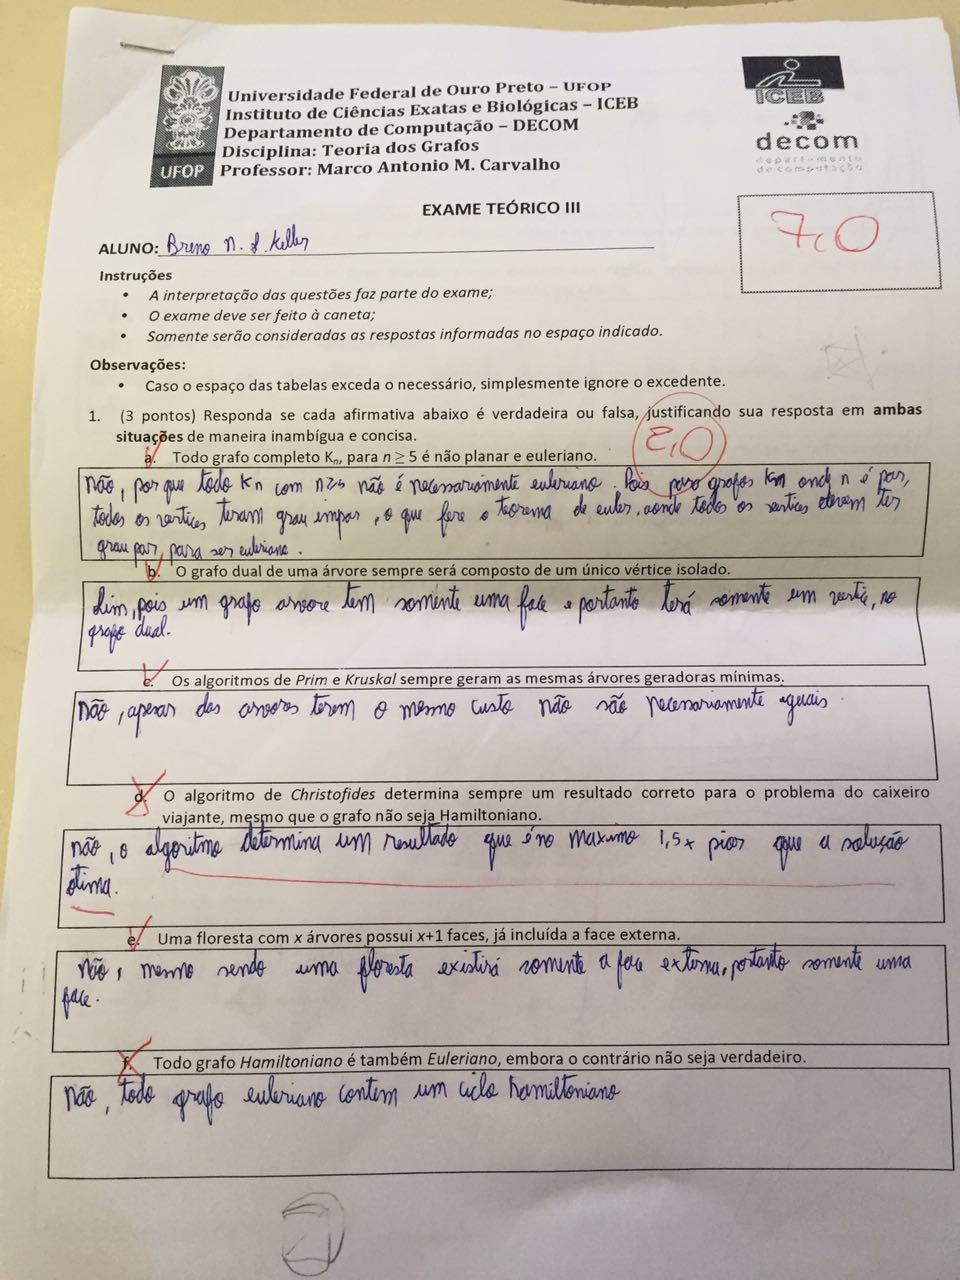 Universidade Federal de Ouro Preto – UFOP
Instituto de Ciências Exatas e Biológicas – ICEB
Departamento de Computação – DECOM
Disciplina: Teoria dos Grafos
Professor: Marco Antonio M. Carvalho
UFOP
ICEB
decom
departamento
de computação
EXAME TEÓRICO III
7,0
ALUNO: Breno N. S. Keller
Instruções
• A interpretação das questões faz parte do exame;
• O exame deve ser feito à caneta;
• Somente serão consideradas as respostas informadas no espaço indicado.
Observações:
• Caso o espaço das tabelas exceda o necessário, simplesmente ignore o excedente.
1. (3 pontos) Responda se cada afirmativa abaixo é verdadeira ou falsa, justificando sua resposta em ambas
situações de maneira inambígua e concisa.
2,0
a. Todo grafo completo Kn, para n ≥ 5 é não planar e euleriano.
Não, por que todo Kn com n≥5 não é necessariamente euleriano. Pois para grafos Kn onde n é par,
todos os vertices teram grau impar, o que fere o teorema de euler, aonde todos os vertices devem ter
grau par, para ser euleriano.
b. O grafo dual de uma árvore sempre será composto de um único vértice isolado.
Sim, pois um grafo arvore tem somente uma face e portanto terá somente um vertice, no
grafo dual.
c. Os algoritmos de Prim e Kruskal sempre geram as mesmas árvores geradoras mínimas.
Não, apesar das arvores terem o mesmo custo não são necessariamente iguais.
d. O algoritmo de Christofides determina sempre um resultado correto para o problema do caixeiro
viajante, mesmo que o grafo não seja Hamiltoniano.
não, o algoritmo determina um resultado que é no maximo 1,5x pior que a solução
otima.
e. Uma floresta com x árvores possui x+1 faces, já incluída a face externa.
Não, mesmo sendo uma floresta existirá somente a face externa, portanto somente uma
face.
f. Todo grafo Hamiltoniano é também Euleriano, embora o contrário não seja verdadeiro.
Não, todo grafo euleriano contem um ciclo hamiltoniano